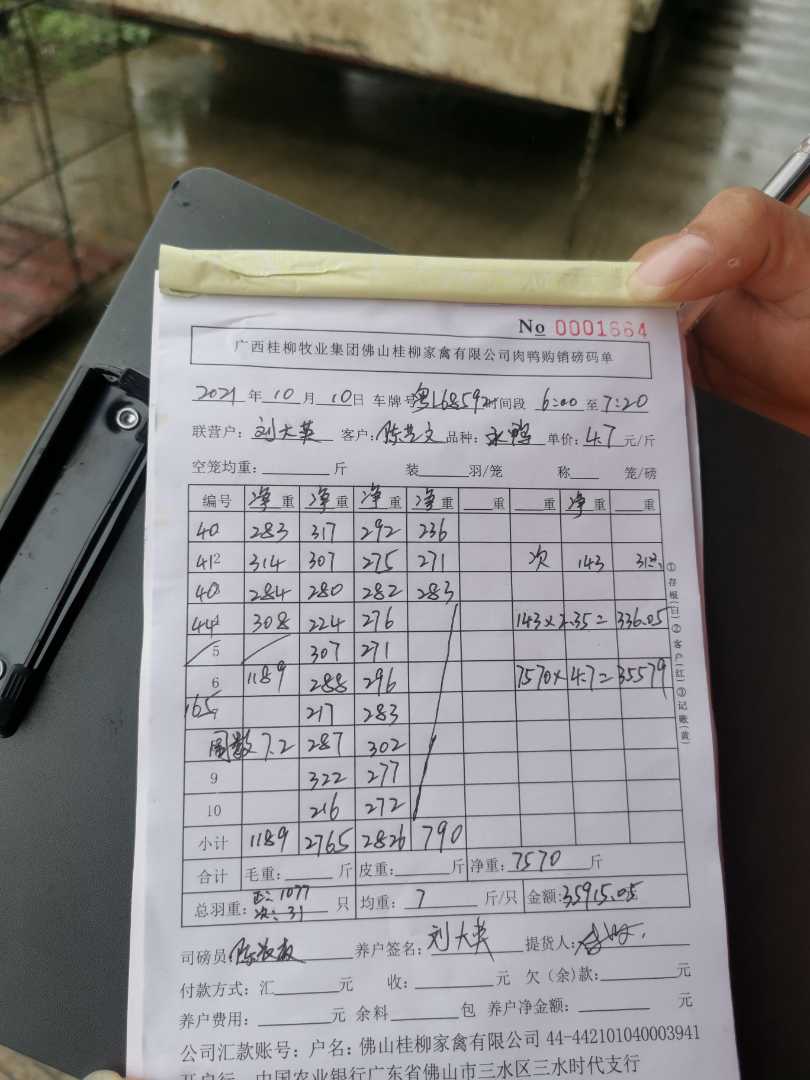 No 0001664
广西桂柳牧业集团佛山桂柳家禽有限公司肉鸭购销磅码单
2021年10月10日 车牌号粤L68592时间段 6:00至7:20
联营户：刘大英 客户：陈艺文 品种：水鸭 单价：4.7元/斤
空笼均重：斤 装羽/笼 称笼/磅
编号 净重 净重 净重 净重 重 重 净重 重
40 283 317 292 236
412 314 307 275 271 次 143 31只
40 284 280 282 283
44 308 224 276 143×2.35=336.05
5 307 271
6 1189 288 296 7570×4.7=35579
165 217 283
周数7.2 287 302
9 322 277
10 216 272
小计 1189 2765 2826 790
合计 毛重：斤 皮重：斤 净重：7570斤
总羽重：正：1077 次：31 只 均重：7斤/只 金额：35915.05
司磅员 养户签名：刘大英 提货人：
付款方式：汇元 收：元 欠(余)款：元
养户费用：元 余料包 养户净金额：元
公司汇款账号：户名：佛山桂柳家禽有限公司 44-442101040003941
开户行 中国农业银行广东省佛山市三水区三水时代支行
①存根(白)②客户(红)③记账(黄)